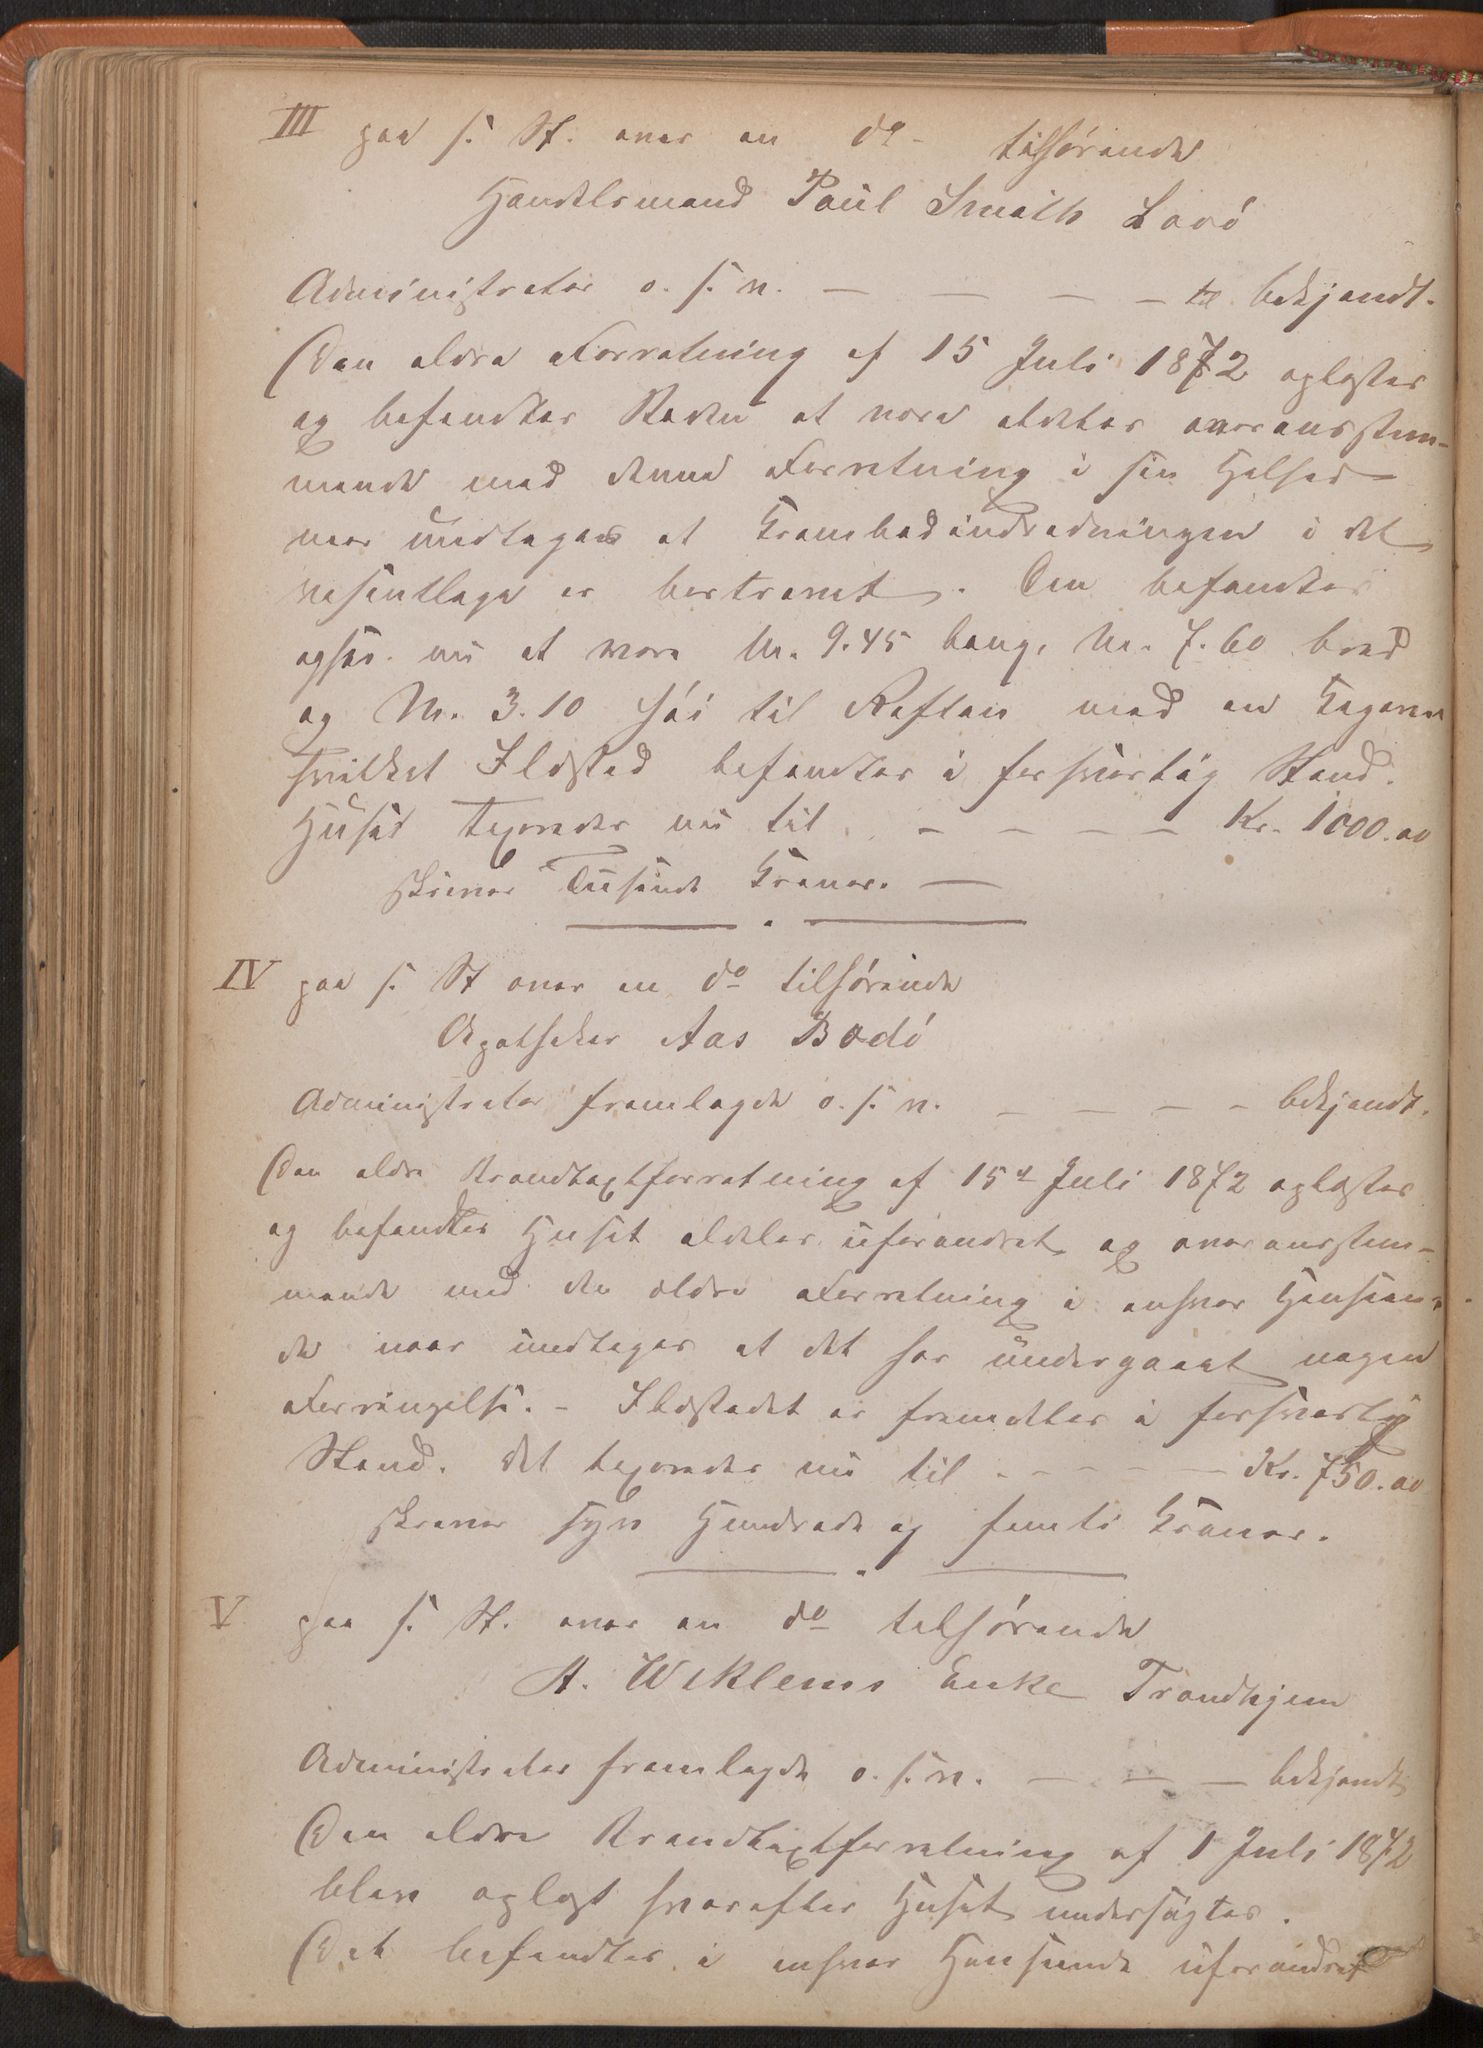 III paa s. St. over en do tilhørende
Handelsmand Paul Smith Lovö
Administrator o. s. v. — — — — bekjendt.
Den ældre Forretning af 15 Juli 1872 oplæstes
og befandtes Boden at være aldeles overensstem-
mende med denne Forretning i sin Helhed
naar undtages at Krambodindredningen i det
væsentlige er borttaget. Den befandtes
ogsaa nu at være M. 9.45 lang, M. 7.60 bred
og M. 3.10 høi til Raftan med en
hvilket Ildsted befandtes i forsvarlig Stand.
Huset taxeredes nu til — — — — Kr. 1000.00
skriver Tusinde Kroner. —
IV paa s. St over en do tilhørende
Apotheker Aas Bodö
Administrator fremlagde o. s. v. — — — — bekjendt.
Den ældre Brandtaxtforretning af 15de Juli 1872 oplæstes
og befandtes Huset aldeles uforandret og overensstem-
mende med den ældre Forretning i enhver Henseen-
de naar undtages at det har undergaaet nogen
Forringelse. – Ildstedet er fremdeles i forsvarlig
Stand. Det taxeredes nu til - - - - - Kr. 750.00
skriver syv Hundrede og femti Kroner.
V paa s. St. over en do tilhørende
A. Weklems Enke Trondhjem
Administrator fremlagde o. s. v. — — — bekjendt
Den ældre Brandtaxtforretning af 1 Juli 1872
blev oplæst hvorefter Huset undersøgtes.
Det befandtes i enhver Henseende uforandret